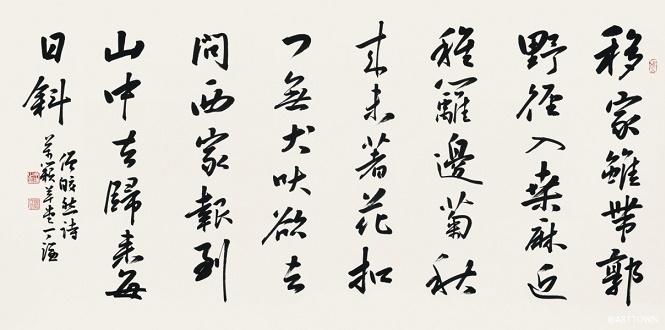 移家雖帶郭
野徑入桑麻近
種籬邊菊秋
来未著花扣
门無犬吠欲去
問西家報到
山中去歸来每
日斜
僧皎然詩
草堂
@ARTTOWN